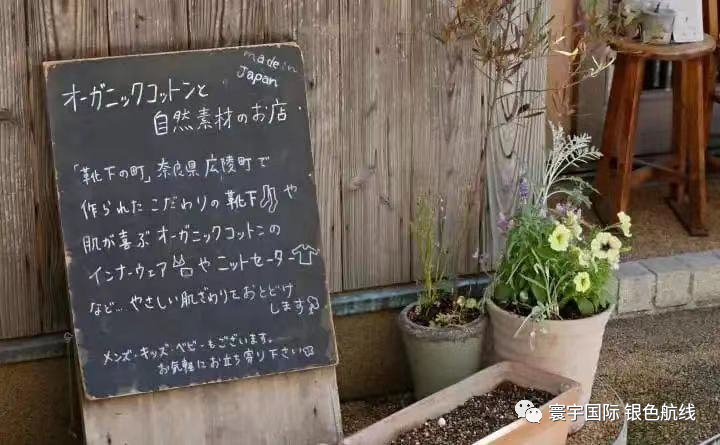 made in
Japan
オーガニックコットンと
自然素材のお店.
「靴下の町」奈良県広陵町で
作られたこだわりの靴下や
肌が喜ぶオーガニックコットンの
インナーウェアやニットセーター
など…やさしい肌ざわりをおとどけ
します
メンズ・キッズ・ベビーもございます。
お気軽にお立ち寄り下さい
寰宇国际 银色航线